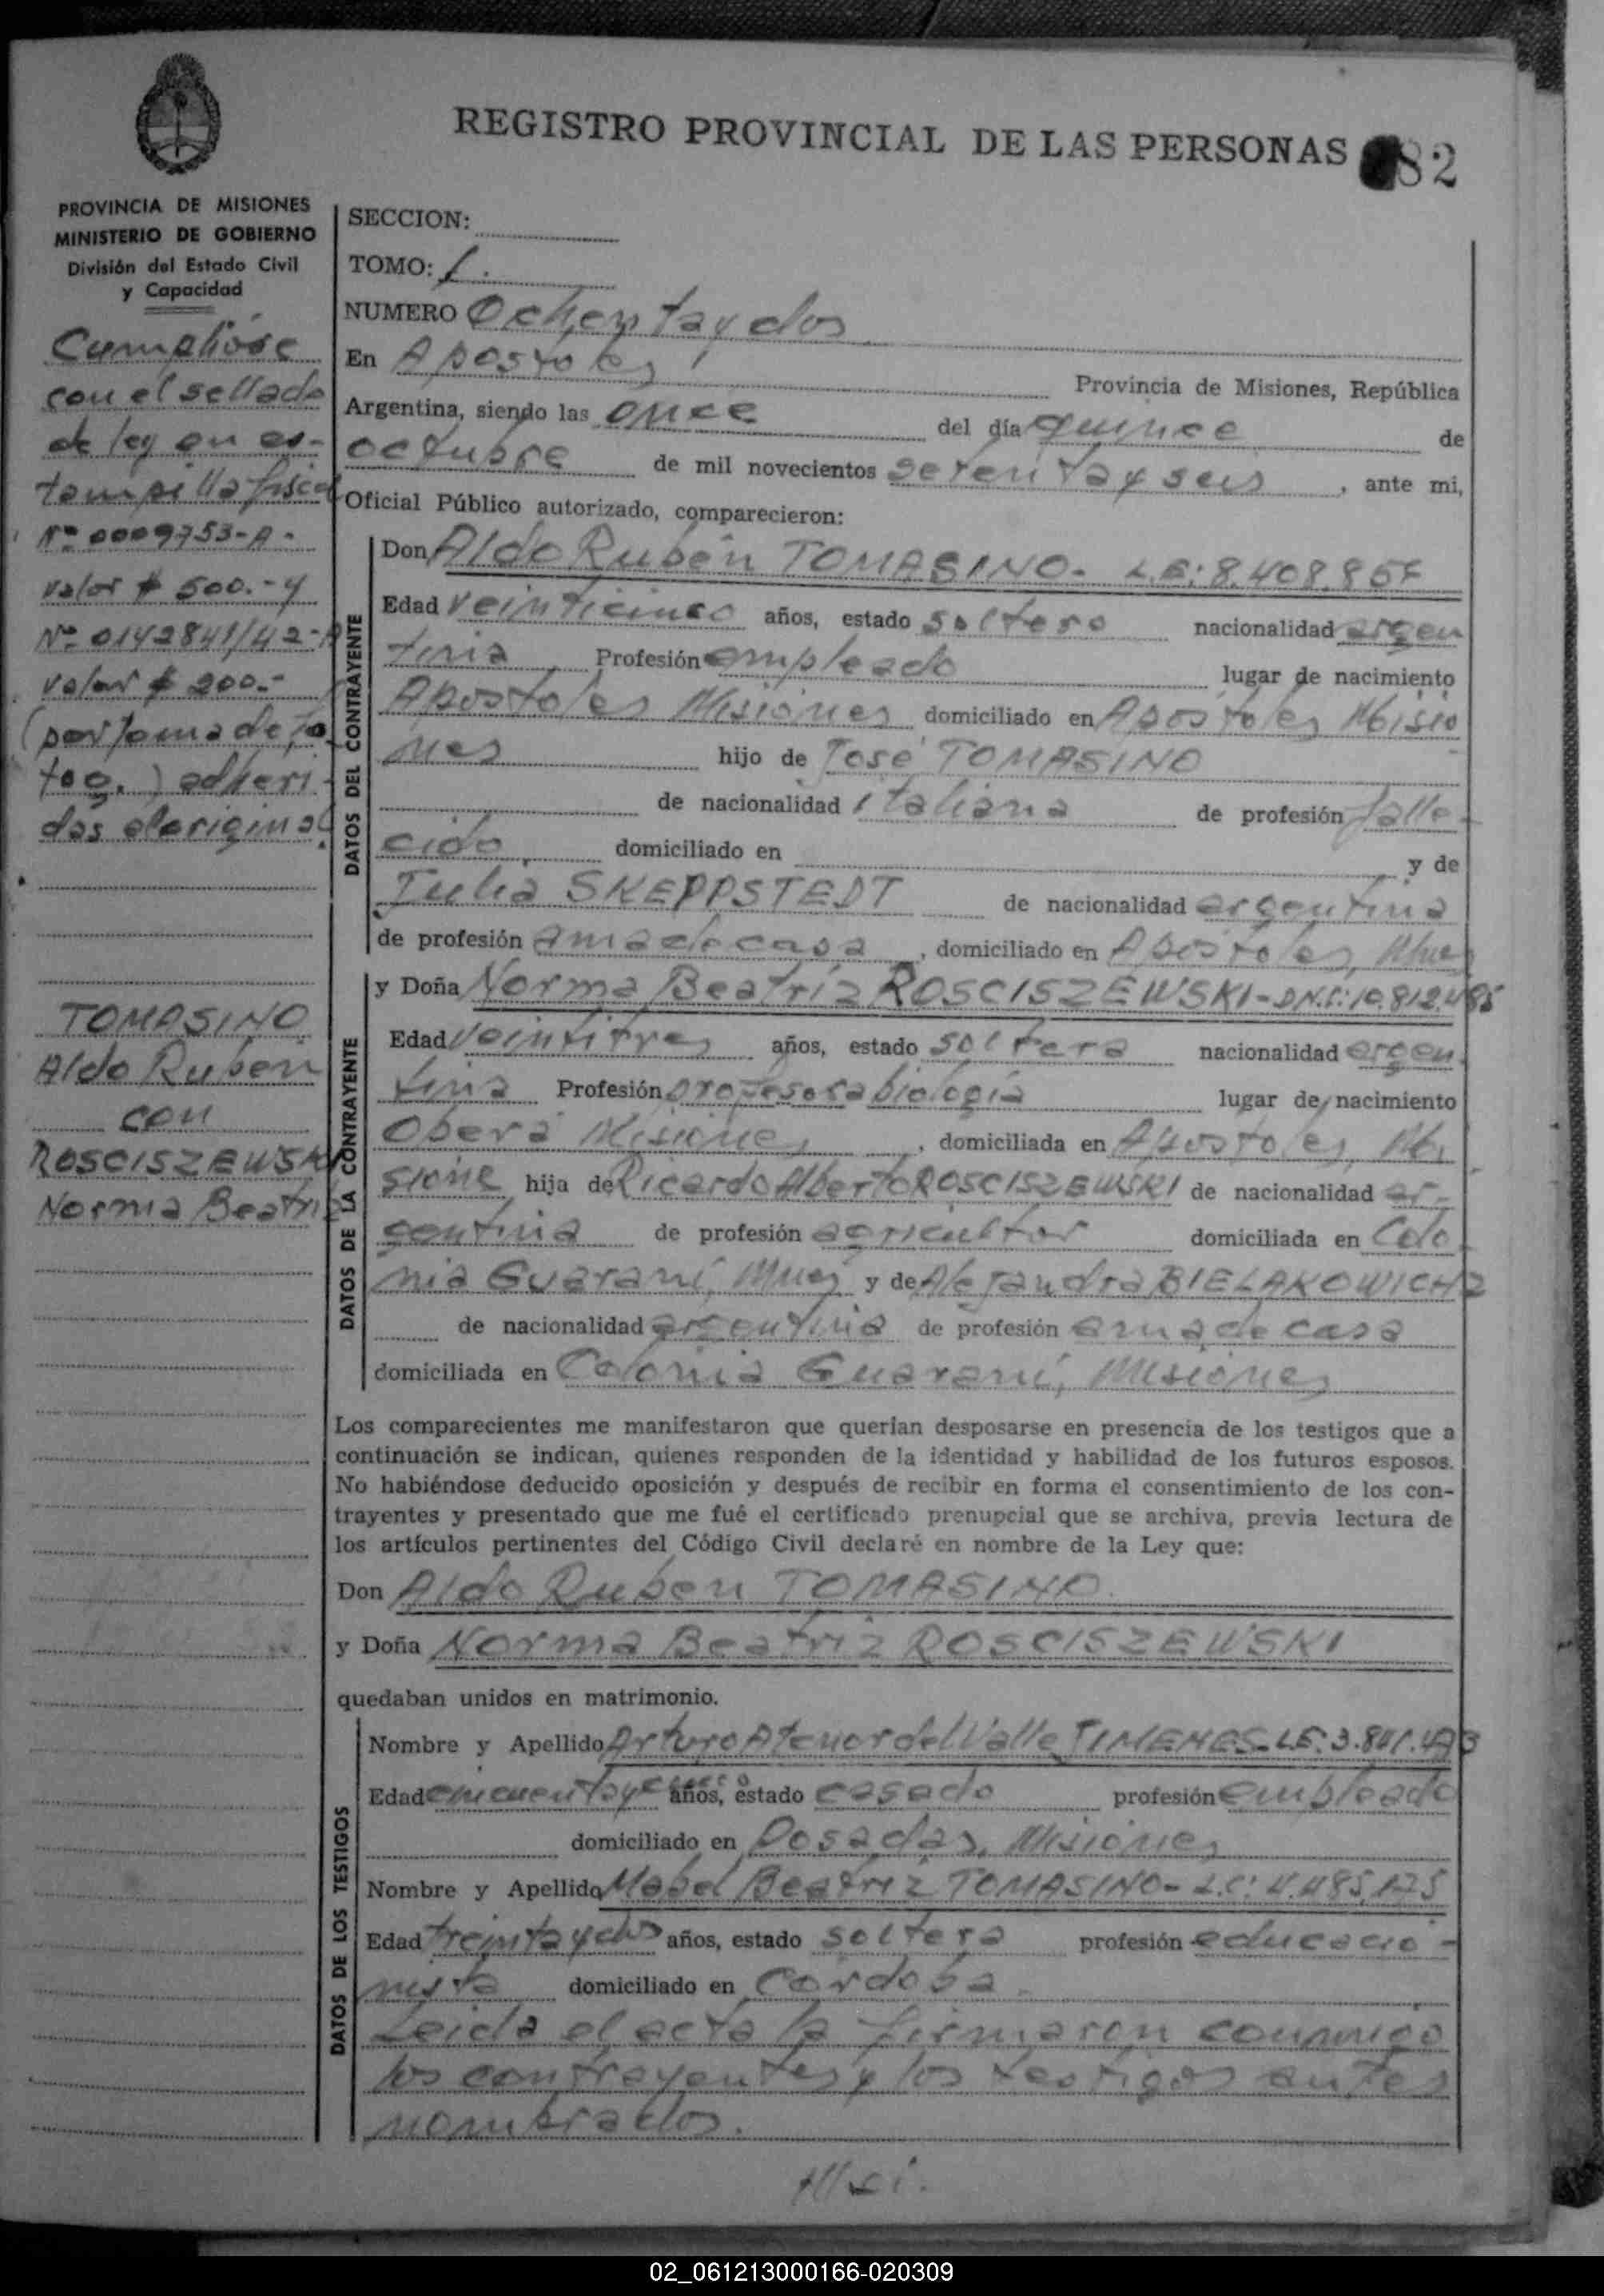 REGISTRO PROVINCIAL DE LAS PERSONAS 82
PROVINCIA DE MISIONES
MINISTERIO DE GOBIERNO
División del Estado Civil
y Capacidad
Cumplióse
con el sellado
de ley en es-
tampilla fiscal
Nº 0009753-A-
valor $ 500.- y
Nº 0142841/42-A
valor $ 200.-
(por toma de fo
tog.) adheri-
das al original.
TOMASINO
Aldo Ruben
con
ROSCISZEWSKI
Norma Beatriz
SECCION:
TOMO: 1.
NUMERO Ochenta y dos
En Apostoles Provincia de Misiones, República
Argentina, siendo las once del día quince de
octubre de mil novecientos setenta y seis, ante mi,
Oficial Público autorizado, comparecieron:
DATOS DEL CONTRAYENTE
Don Aldo Rubén TOMASINO- L.E: 8.408.857
Edad veinticinco años, estado soltero nacionalidad argen
tina Profesión empleado lugar de nacimiento
Apostoles Misiones domiciliado en Apostoles Misio
nes hijo de José TOMASINO
de nacionalidad italiana de profesión falle-
cido domiciliado en y de
Julia SKEPPSTEDT de nacionalidad argentina
de profesión ama de casa, domiciliado en Apostoles, Mnes
DATOS DE LA CONTRAYENTE
y Doña Norma Beatriz ROSCISZEWSKI - D.N.I: 10.812.485
Edad veintitres años, estado soltera nacionalidad argen-
tina Profesión profesora biología lugar de nacimiento
Oberá Misiones, domiciliada en Apostoles, Mi
sione hija de Ricardo Alberto ROSCISZEWSKI de nacionalidad ar-
gentina de profesión agricultor domiciliada en Colo
nia Guaraní, Mnes y de Alejandra BIELAKOWICHZ
de nacionalidad argentina de profesión ama de casa
domiciliada en Colonia Guaraní, Misiones
Los comparecientes me manifestaron que querían desposarse en presencia de los testigos que a
continuación se indican, quienes responden de la identidad y habilidad de los futuros esposos.
No habiéndose deducido oposición y después de recibir en forma el consentimiento de los con-
trayentes y presentado que me fué el certificado prenupcial que se archiva, previa lectura de
los artículos pertinentes del Código Civil declaré en nombre de la Ley que:
Don Aldo Ruben TOMASINO.
y Doña Norma Beatriz ROSCISZEWSKI
quedaban unidos en matrimonio.
DATOS DE LOS TESTIGOS
Nombre y Apellido Arturo Atenor del Valle JIMENES- L.E: 3.841.
Edad cincuenta y años, estado casado profesión empleado
domiciliado en Posadas, Misiones
Nombre y Apellido Mabel Beatriz TOMASINO- L.C: 4.485.175
Edad treinta y dos años, estado soltera profesión educacio-
nista domiciliado en Córdoba.
Leída el acta la firmaron conmigo
los contrayentes y los testigos antes
nombrados.
02_061213000166-020309